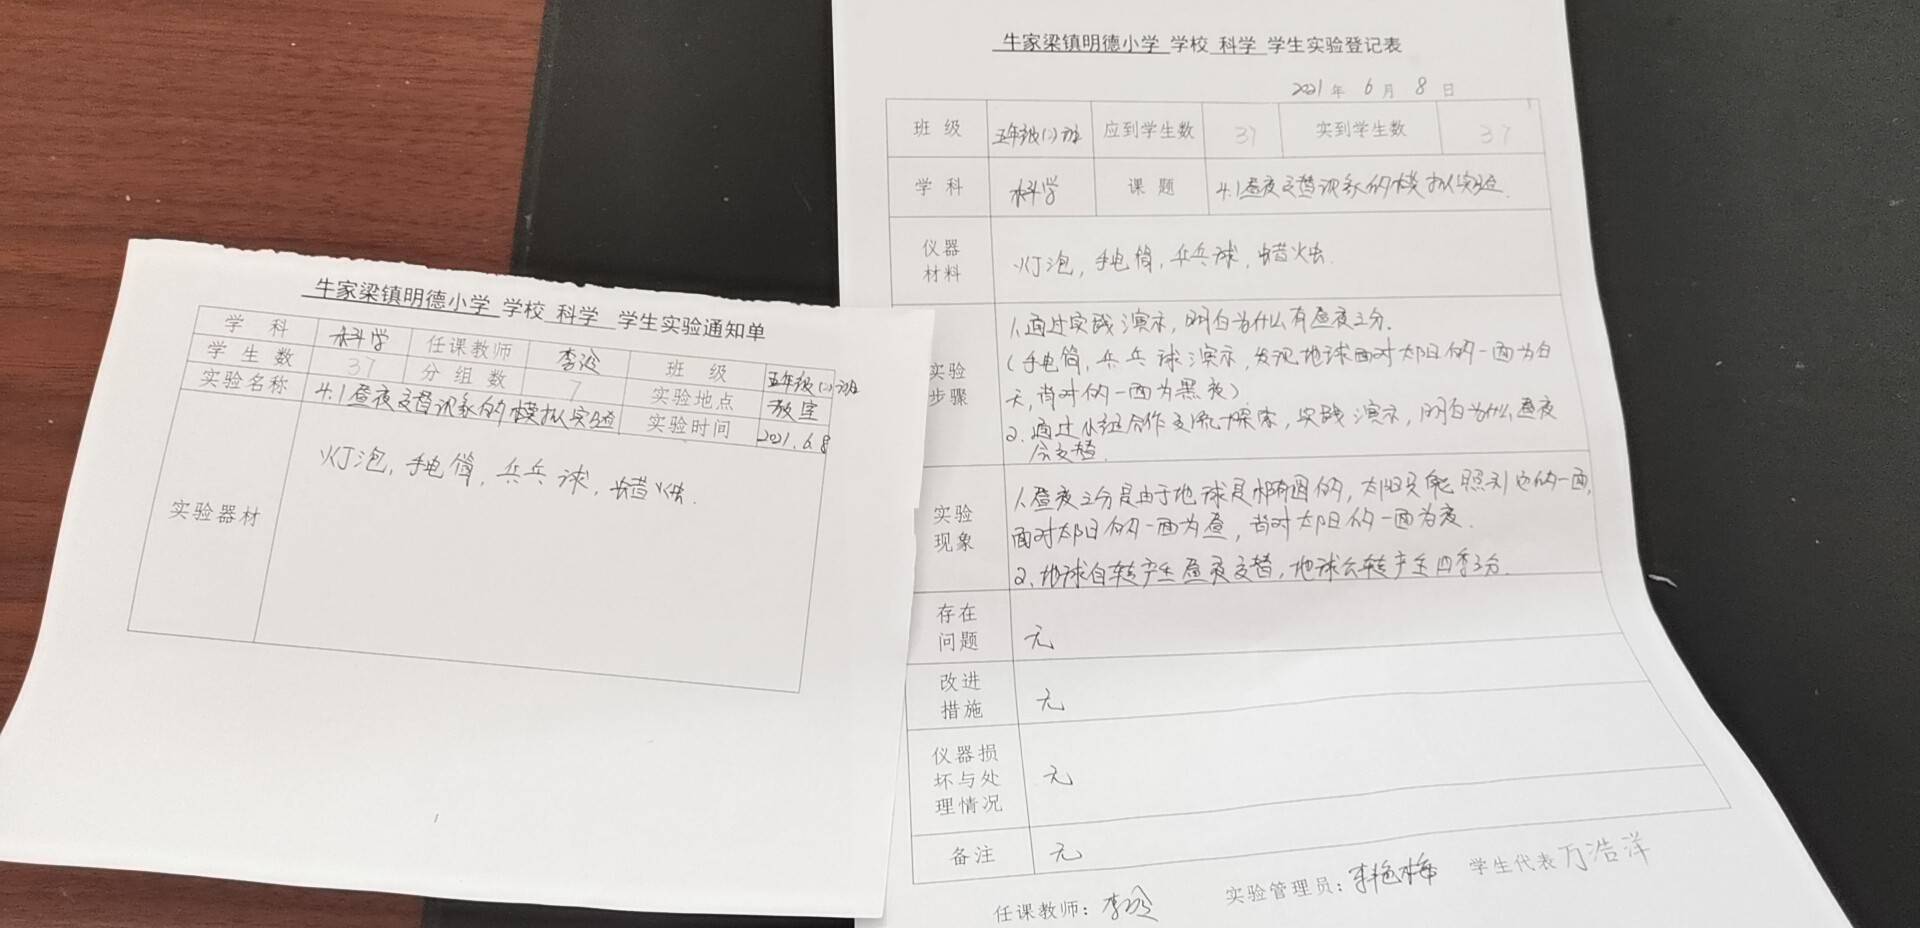 牛家梁镇明德小学 学校 科学 学生实验通知单
学科 科学 任课教师 李玲 班级 五年级(2)班
学生数 37 分组数 7 实验地点 教室
实验名称 4.1昼夜交替现象的模拟实验 实验时间 2021.6.8
实验器材 灯泡,手电筒,乒乓球,蜡烛.
牛家梁镇明德小学 学校 科学 学生实验登记表
2021年 6月 8日
班级 五年级(2)班 应到学生数 37 实到学生数 37
学科 科学 课题 4.1昼夜交替现象的模拟实验.
仪器
材料
灯泡,手电筒,乒乓球,蜡烛.
实验
步骤
1.通过实践演示,明白为什么有昼夜之分.
(手电筒,乒乓球演示,发现地球面对太阳的一面为白
天,背对的一面为黑夜)
2.通过小组合作交流探索,实践演示,明白为什么昼夜
会交替.
实验
现象
1.昼夜之分是由于地球是椭圆的,太阳只能照到它的一面,
面对太阳的一面为昼,背对太阳的一面为夜.
2.地球自转产生昼夜交替,地球公转产生四季之分.
存在
问题
无
改进
措施
无
仪器损
坏与处
理情况
无
备注 无
任课教师:李玲 实验管理员:李艳梅 学生代表 万浩洋